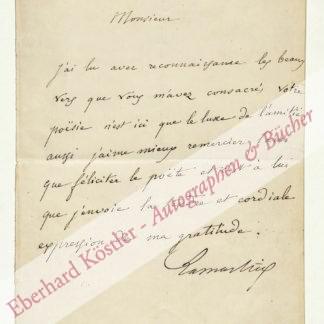 Monsieur
j'ai lu avec reconnaissance les beaux
vers que vous m'avez consacrés. Votre
poësie n'est ici que le luxe de l'amitié
aussi j'aime mieux remercier
que féliciter le poëte et c'est à lui
que j'envoie la et cordiale
expression de ma gratitude.
Lamartine
Eberhard Köstler - Autographen & Bücher